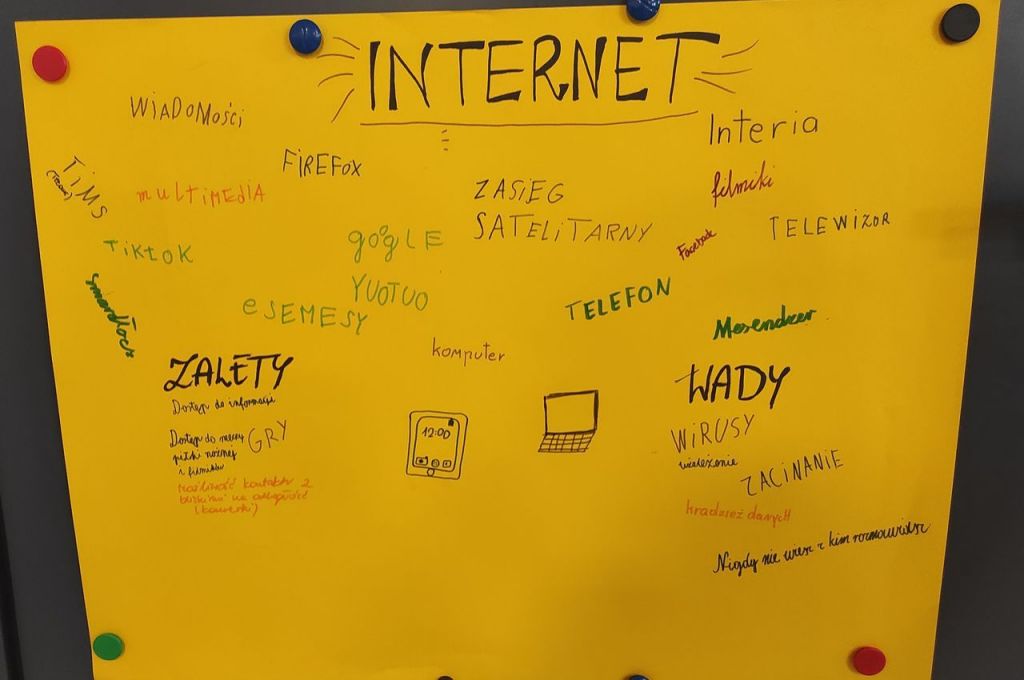 INTERNET
WiADOMości
Interia
FiREFOX
TiMS
(Teams)
multiMEDiA
ZASiĘG
SATELiTARNY
filmiki
TELEWIZOR
Facebook
TikTOK
googLE
YUOTUO
eSEMESY
TELEFON
Mesendżer
komputer
ZALETY
Dostęp do informacji
GRY
Dostęp do meczy
piłki nożnej
i filmików
możliwość kontaktu z
bliskimi na odległość
(kamerki)
12:00
WADY
WiRUSY
uzależnienie
ZACiNANIE
kradzież danych
Nigdy nie wiesz z kim rozmawiasz